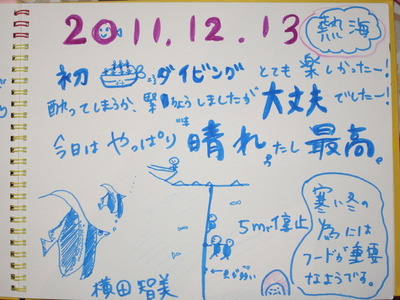 2011.12.13
熱海
初 ダイビング とても楽しかったー!
酔ってしまうか、緊張しましたが大丈夫でしたー!
今日は やっぱり 晴れ。たし 最高。
5m停止
寒い冬の
為には
フードが重要
なようです。
横田智美